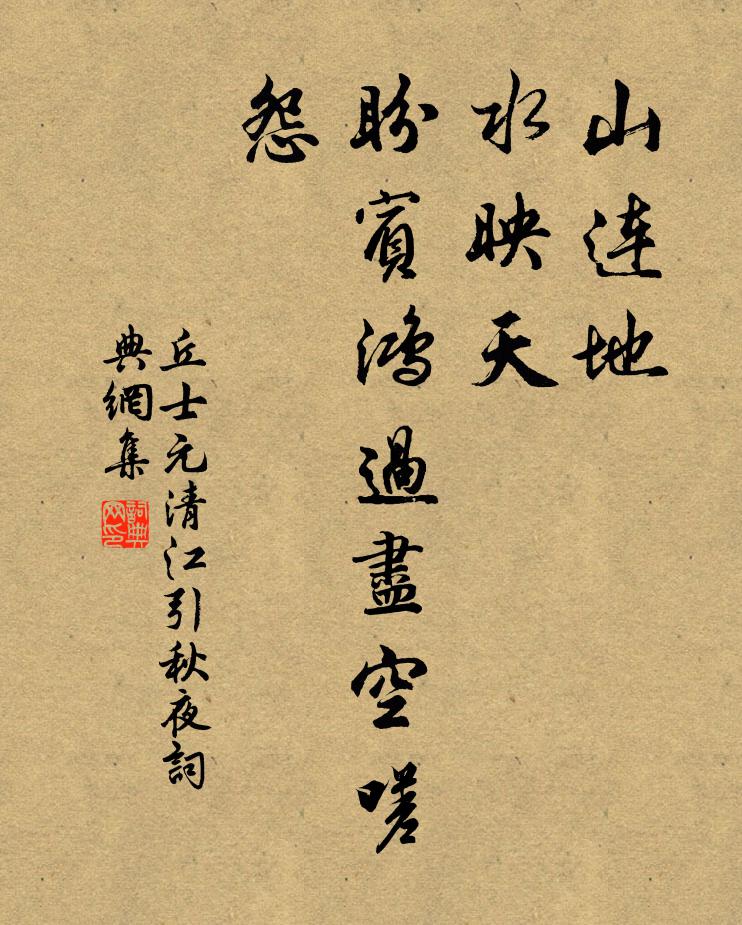 山連地
水映天
盼賓鴻過盡空嗟
怨
丘士元清江引秋夜詞
典網集
詞典
网印